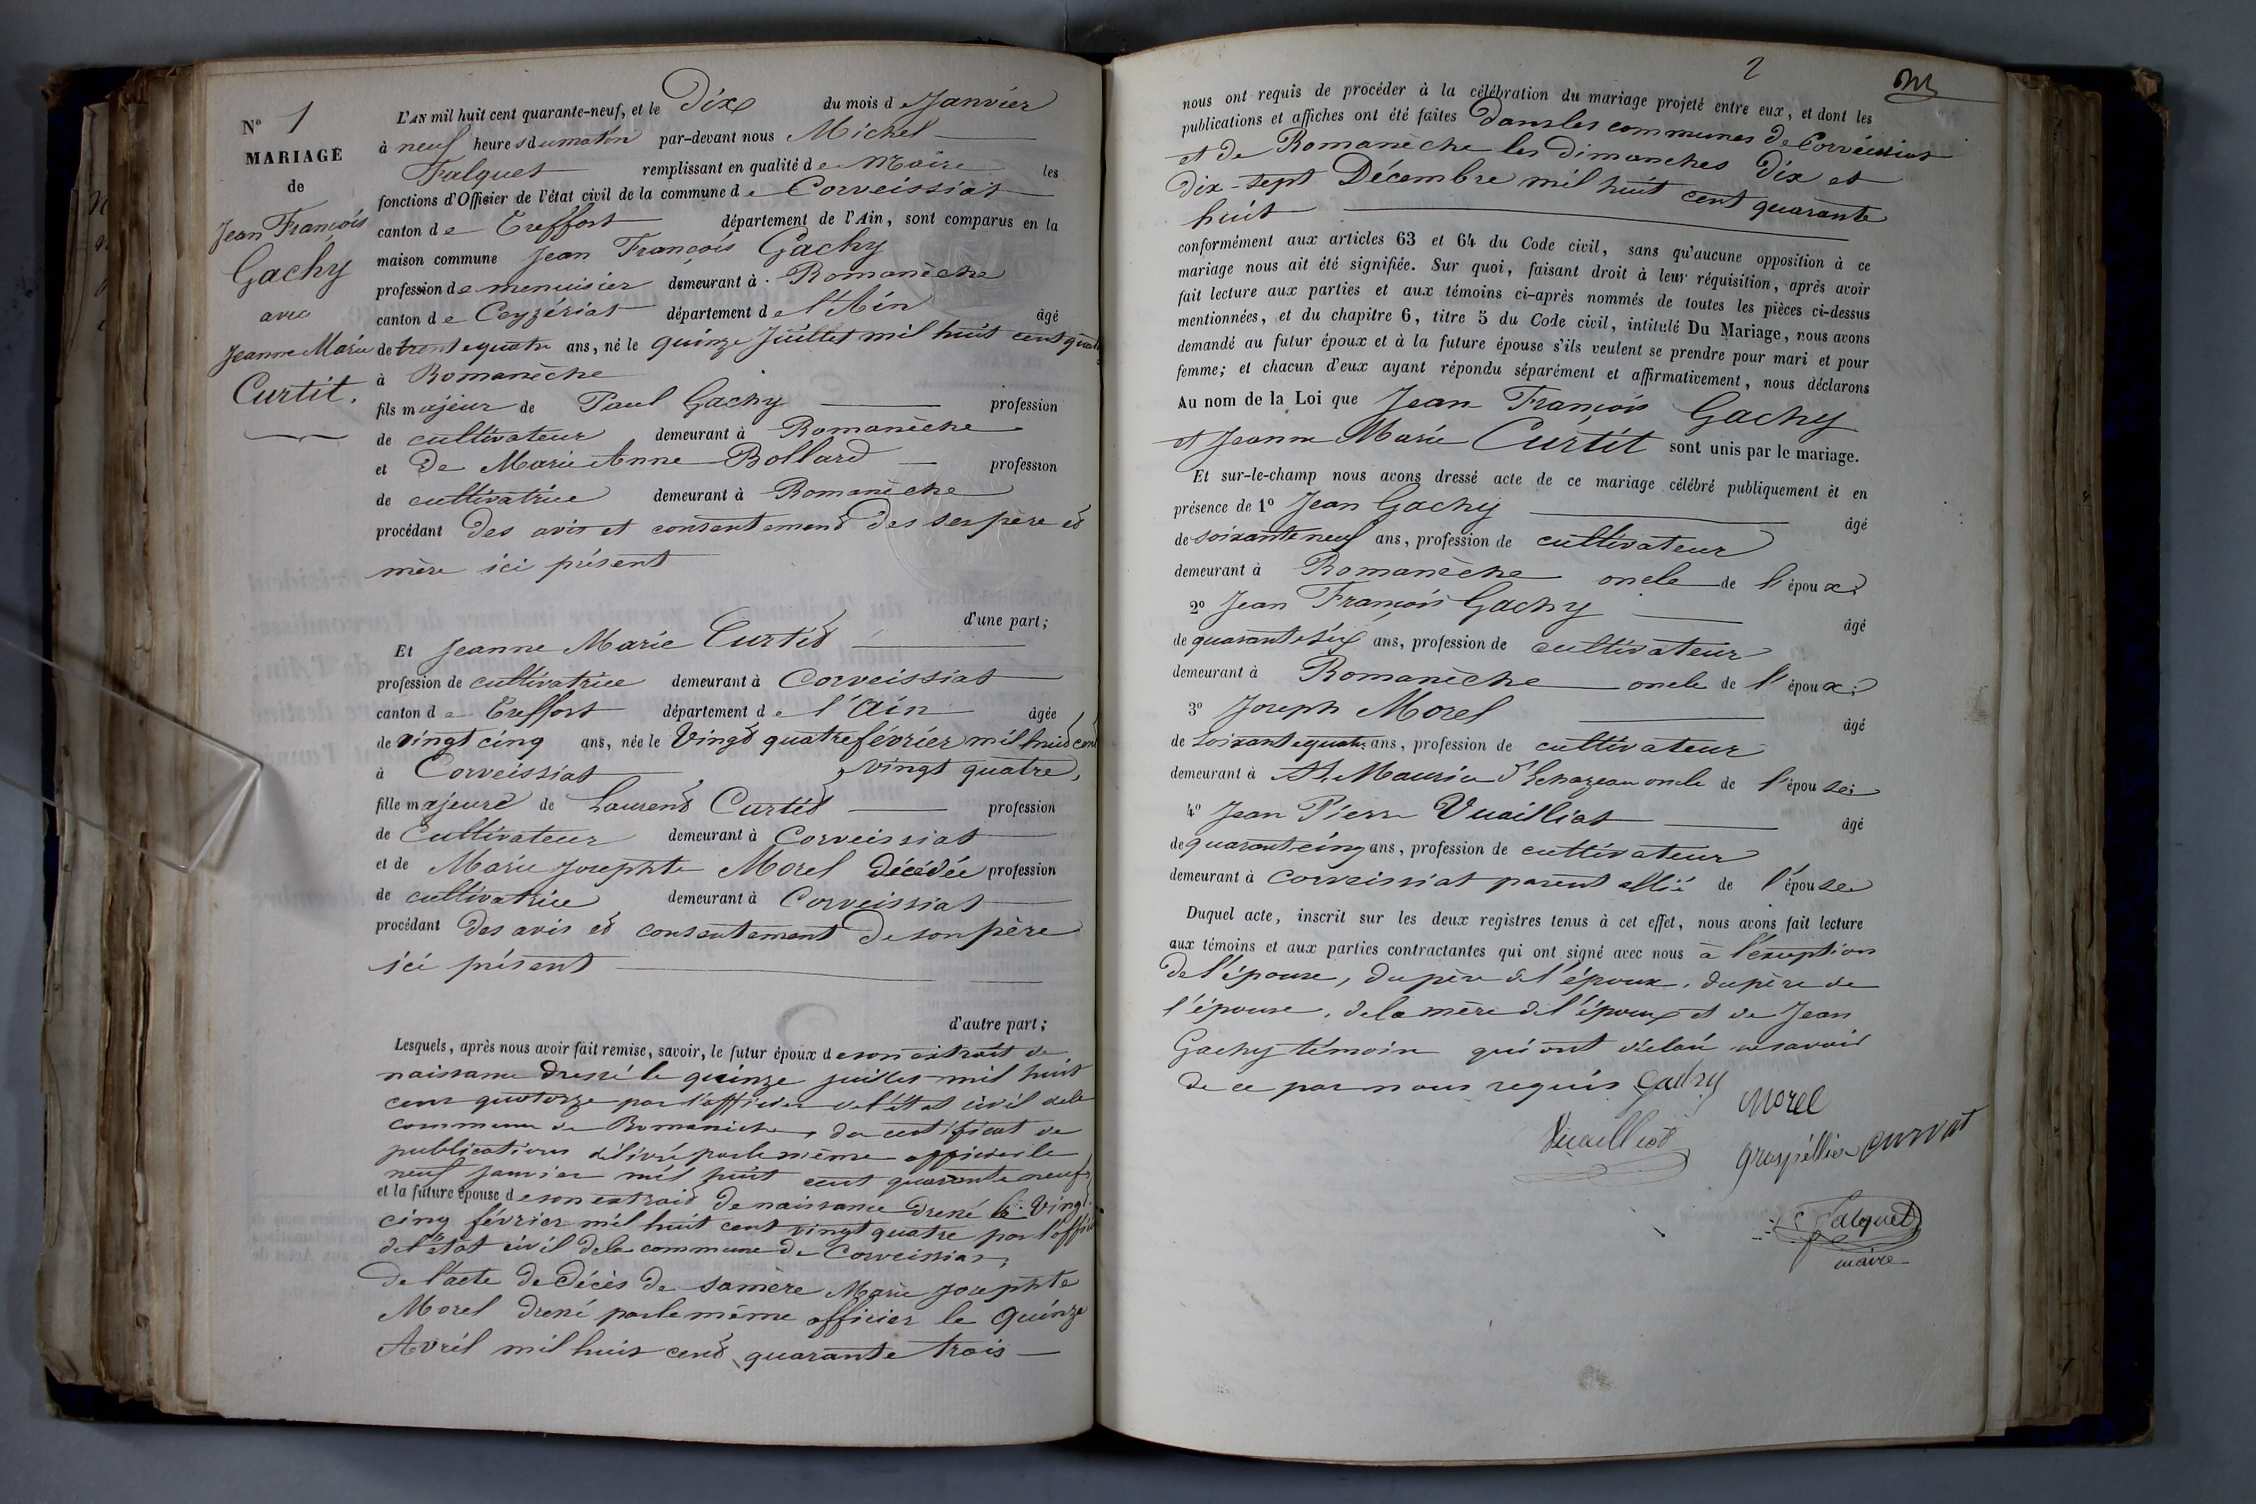 N° 1
MARIAGE
de
Jean François
Gachy
avec
Jeanne Marie
Curtit.
L'AN mil huit cent quarante-neuf, et le Dix du mois de Janvier
à neuf heures du matin par-devant nous Michel
Falquet remplissant en qualité de Maire les
fonctions d'Officier de l'état civil de la commune de Corveissiat
canton de Treffort département de l'Ain, sont comparus en la
maison commune Jean François Gachy
profession de menuisier demeurant à Romanèche
canton de Ceyzériat département de l'Ain âgé
de trente quatre ans, né le quinze Juillet mil huit cent
à Romanèche
fils majeur de Paul Gachy profession
de cultivateur demeurant à Romanèche
et de Marie Anne Bollard profession
de cultivatrice demeurant à Romanèche
procédant des avis et consentement des ses père et
mère ici présent
d'une part;
Et Jeanne Marie Curtit
profession de cultivatrice demeurant à Corveissiat
canton de Treffort département de l'Ain âgée
de vingt cinq ans, née le Vingt quatre février mil huit cent
à Corveissiat vingt quatre,
fille majeure de Laurent Curtit profession
de Cultivateur demeurant à Corveissiat
et de Marie Josephte Morel Décédée profession
de cultivatrice demeurant à Corveissiat
procédant des avis et consentement de son père
ici présent
d'autre part;
Lesquels, après nous avoir fait remise, savoir, le futur époux de son extrait de
naissance dressé le quinze juillet mil huit
cent quatorze par l'officier de l'état civil de la
commune de Romanèche, du certificat de
publications délivré par le même officier le
neuf janvier mil huit cent quarante neuf
et la future épouse de son extrait de naissance dressé le Vingt
cinq février mil huit cent vingt quatre par l'officier
de l'état civil de la commune de Corveissiat,
de l'acte de décès de sa mère Marie Josephte
Morel dressé par le même officier le quinze
Avril mil huit cent quarante trois
2
nous ont requis de procéder à la célébration du mariage projeté entre eux, et dont les
publications et affiches ont été faites Dans les communes de Corveissiat
et de Romanèche les Dimanches Dix et
Dix-sept Décembre mil huit cent quarante
huit
conformément aux articles 63 et 64 du Code civil, sans qu'aucune opposition à ce
mariage nous ait été signifiée. Sur quoi, faisant droit à leur réquisition, après avoir
fait lecture aux parties et aux témoins ci-après nommés de toutes les pièces ci-dessus
mentionnées, et du chapitre 6, titre 5 du Code civil, intitulé Du Mariage, nous avons
demandé au futur époux et à la future épouse s'ils veulent se prendre pour mari et pour
femme; et chacun d'eux ayant répondu séparément et affirmativement, nous déclarons
Au nom de la Loi que Jean François Gachy
et Jeanne Marie Curtit sont unis par le mariage.
Et sur-le-champ nous avons dressé acte de ce mariage célébré publiquement et en
présence de 1° Jean Gachy âgé
de soixante neuf ans, profession de cultivateur
demeurant à Romanèche oncle de l'époux;
2° Jean François Gachy âgé
de quarante six ans, profession de cultivateur
demeurant à Romanèche oncle de l'époux;
3° Joseph Morel âgé
de soixante quatre ans, profession de cultivateur
demeurant à St Maurice d'Echazeau oncle de l'épouse;
4° Jean Pierre Vuailliat âgé
de quarante cinq ans, profession de cultivateur
demeurant à Corveissiat parent allié de l'épouse
Duquel acte, inscrit sur les deux registres tenus à cet effet, nous avons fait lecture
aux témoins et aux parties contractantes qui ont signé avec nous à l'exception
de l'épouse, du père de l'époux, du père de
l'épouse, de la mère de l'époux et de Jean
Gachy témoin qui ont déclaré ne savoir
de ce par nous requis Gachy
Morel
Vuailliat
Grospellier Curvat
Falquet
maire